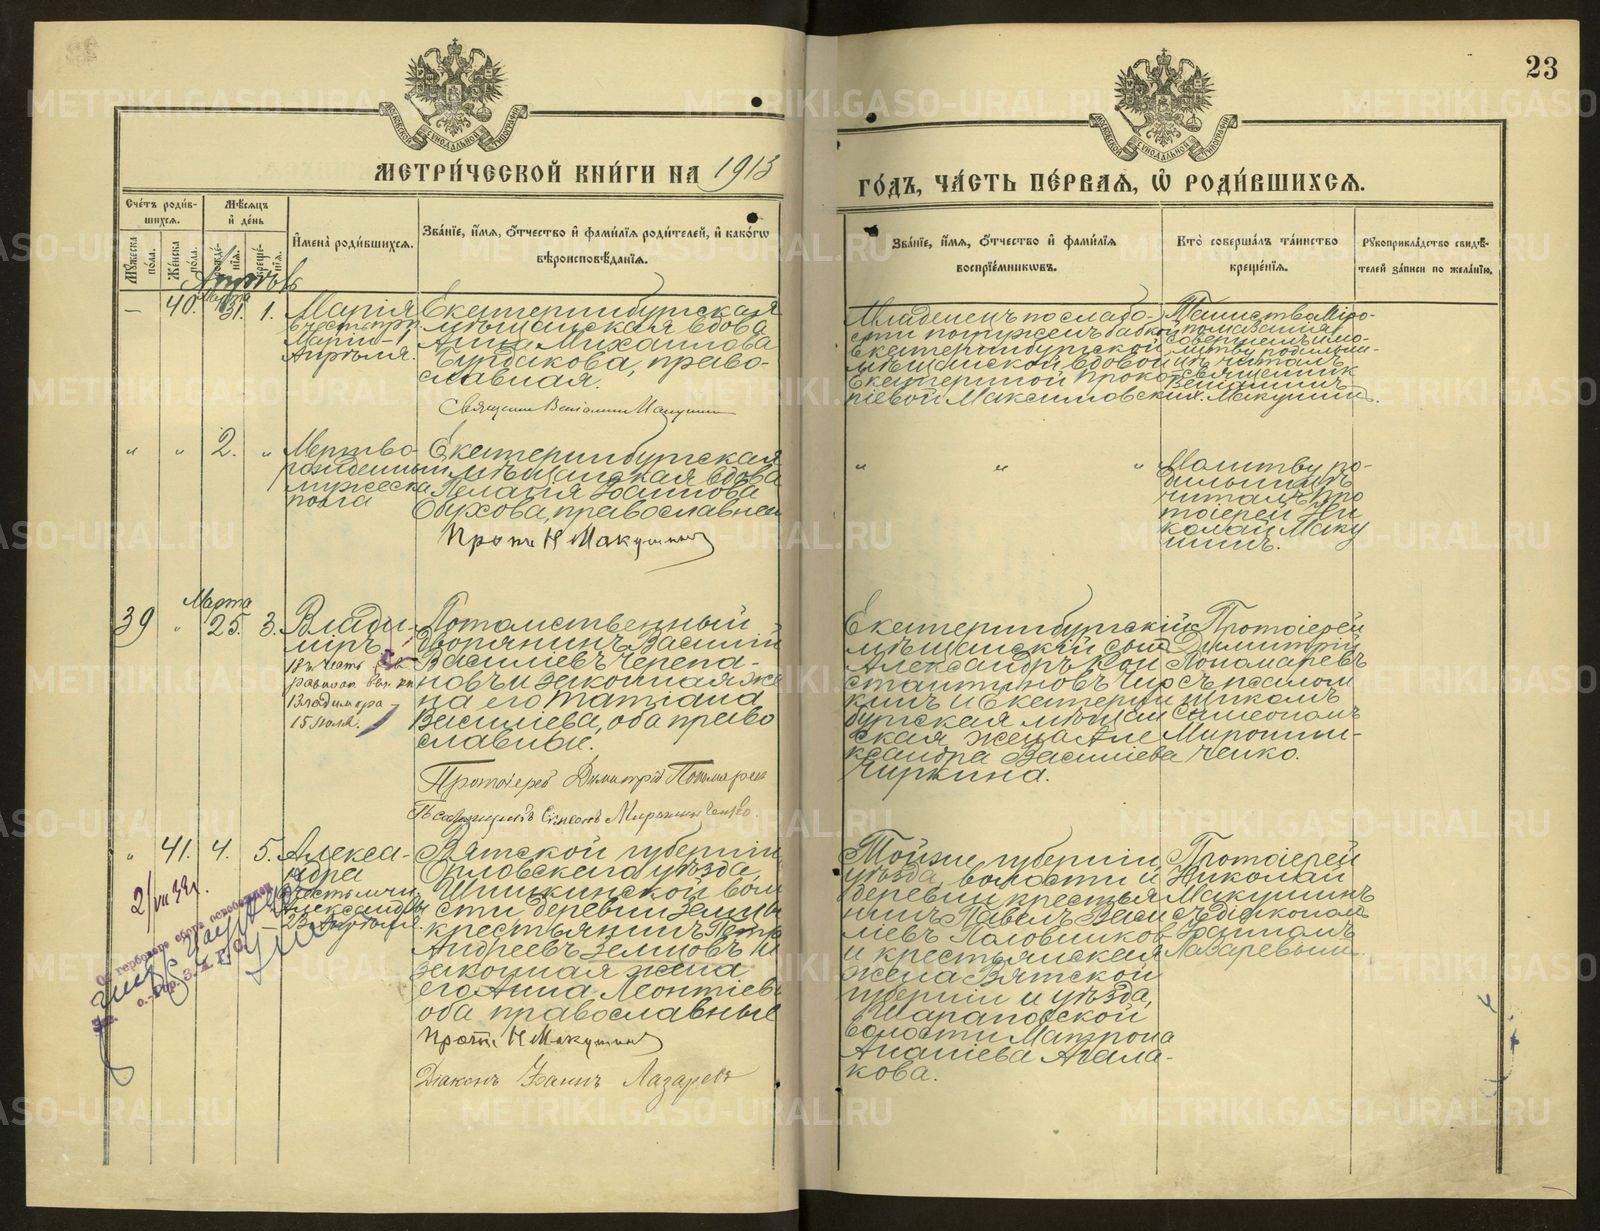 23
МЕТРИ́ЧЕСКОЙ КНИ́ГИ НА 1913
ГО́ДЪ, ЧА́СТЬ ПЕ́РВАѦ, Ѡ҆ РОДИ́ВШИХСѦ.
Сче́тъ роди́в-
шихсѧ.
Мꙋ́жеска по́ла.
Же́нска по́ла.
Мѣ́сѧцъ
и҆ де́нь
рожде́-нїѧ.
креще́-нїѧ.
И҆мена̀ роди́вшихсѧ.
Зва́нїе, и҆́мѧ, ѻ҆́тчество и҆ фами́лїѧ роди́телей, и҆ како́гѡ
вѣроисповѣ́данїѧ.
Зва́нїе, и҆́мѧ, ѻ҆́тчество и҆ фами́лїѧ
воспрїе́мникѡвъ.
Кто̀ соверша́лъ та́инство
креще́нїѧ.
Рꙋкоприкла́дство свидѣ́-
телей за́писи по жела́нїю.
Апрѣль
Марта
— 40. 31. 1.
Марія
въ честь прп.
Маріи – 1
Апрѣля.
Екатеринбургская
мѣщанская вдова
Анна Михаилова
Бурдакова, право-
славная.
Священникъ Веніаминъ Макушинъ
Младенецъ по слабо-
сти погруженъ бабкой
Екатеринбургской
мѣщанской вдовой
Екатериной Проко-
піевой Максимовскихъ.
Таинство Мѵро-
помазанія
совершилъ и мо-
литву родильни-
цѣ читалъ
священник
Веніаминъ
Макушин.
" " 2. "
Мертво-
рожденный
мужеска
пола
Екатеринбургская
мѣщанская вдова
Пелагія Іоаннова
Обухова, православная
Прот. Н Макушинъ
" " "
Молитву ро-
дильницѣ
читалъ Про
тоіерей Ни
колай Маку
шинъ.
Марта
39 " 25. 3.
Влади-
міръ
13 Владимира
15 Іюля.
Потомственный
дворянинъ Василій
Василіевъ Черепа-
новъ и законная же
на его Татіана
Василіева, оба право
славные.
Протоіерей Димитрій Пономаревъ
Псаломщикъ Симеонъ Мирошниченко.
Екатеринбургскій
мѣщанскій сынъ
Александръ Кон
стантиновъ Чир
кинъ и Екатерин
бургская мѣщан
ская жена Але
ксандра Василіева
Чиркина.
Протоіерей
Димитрій
Пономаревъ
съ псалом
щикомъ
Симеономъ
Мирошни-
ченко.
" 41. 4. 5.
Алекса-
ндра
въ честь мчц.
Александры
– 23 Апрѣля.
Вятской губерніи,
Орловскаго уѣзда,
Шишкинской воло
сти деревни Земцы
крестьянинъ Петръ
Андреевъ Земцовъ и
законная жена
его Анна Леонтіева
оба православные
Прот. Н Макушинъ
Діаконъ Іоаннъ Лазаревъ
Той же губерніи
уѣзда, волости и
деревни крестья
нинъ Павелъ Васи
ліевъ Половников
и крестьянская
жена Вятской
губерніи и уѣзда,
Шараповской
волости Матрона
Ананіева Агала-
кова.
Протоіерей
Николай
Макушинъ
съ діакономъ
Іоанномъ
Лазаревым.
2/VII 39 г.
От гербового сбора освобожден
METRIKI.GASO-URAL.RU